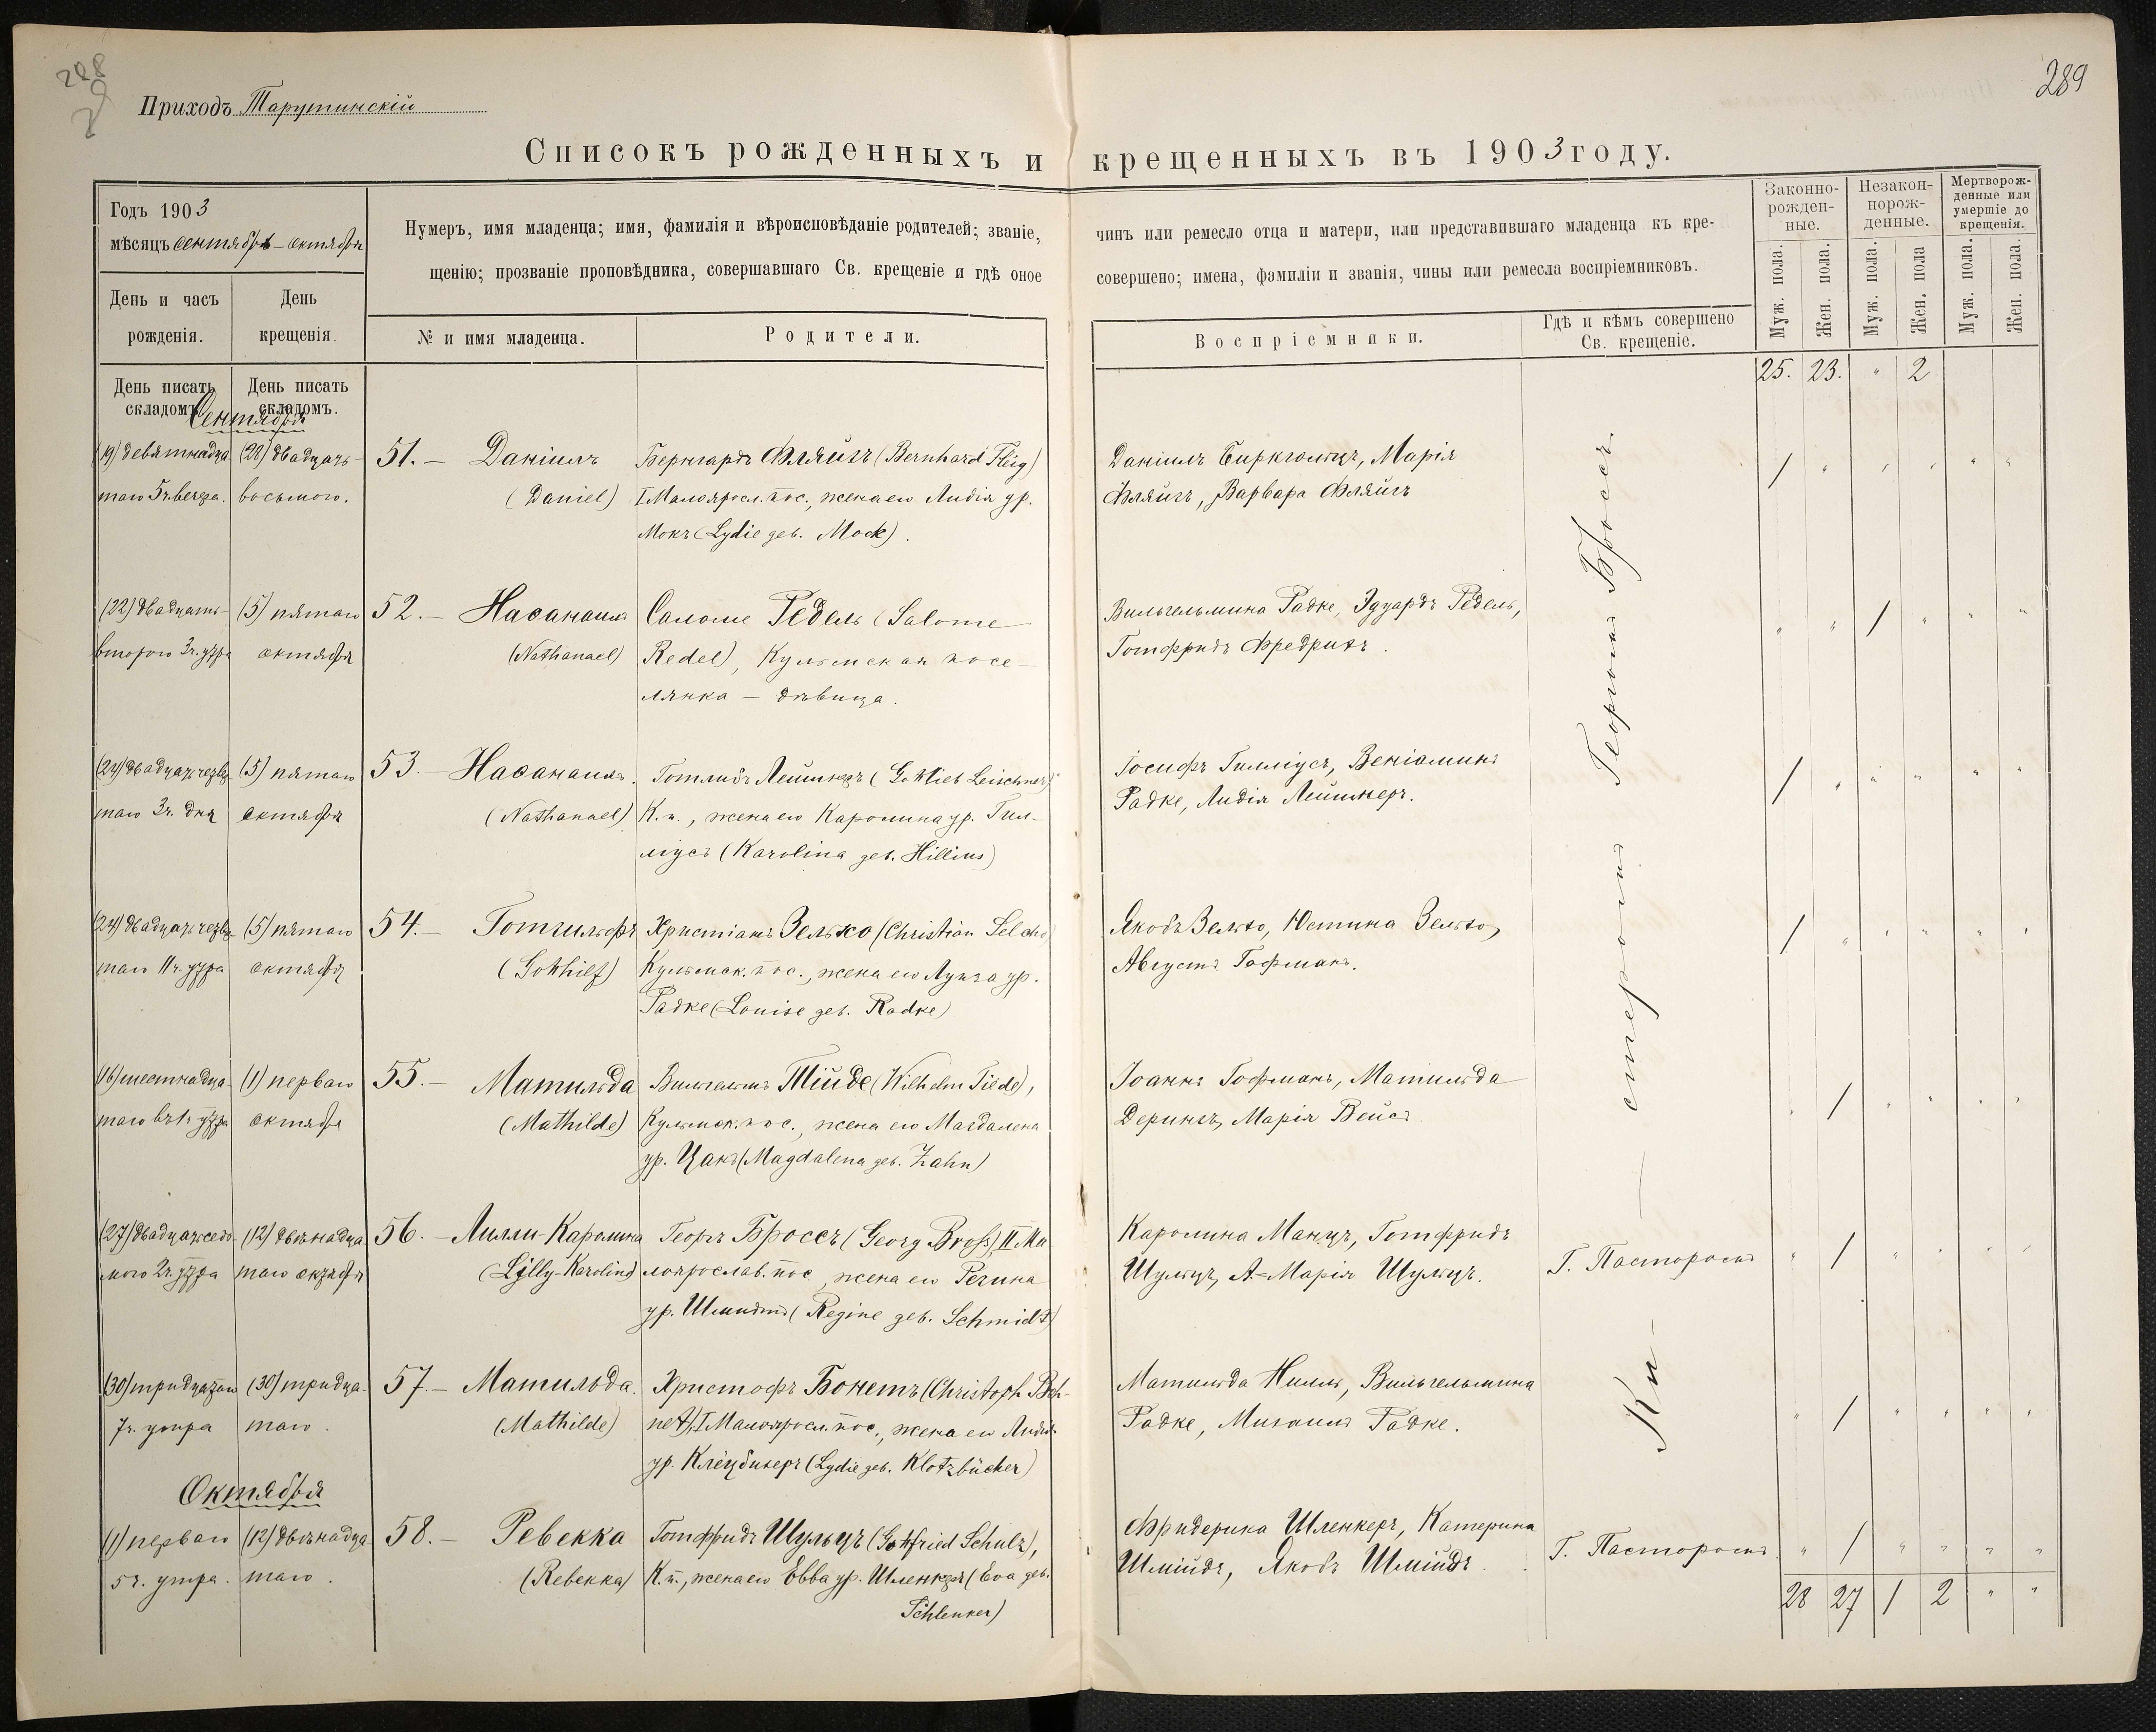 288
289
Приходъ Тарутинскій
Списокъ рожденныхъ и крещенныхъ въ 1903 году.
Годъ 1903
мѣсяцъ сентябрь – октября
Нумеръ, имя младенца; имя, фамилія и вѣроисповѣданіе родителей; званіе, чинъ или ремесло отца и матери, или представившаго младенца къ кре-
щенію; прозваніе проповѣдника, совершавшаго Св. крещеніе и гдѣ оное совершено; имена, фамиліи и званія, чины или ремесла воспріемниковъ.
Законно-
рожден-
ные.
Незакон-
норож-
денные.
Мертворож-
денные или
умершіе до
крещенія.
День и часъ
рожденія.
День
крещенія.
№ и имя младенца.
Родители.
Воспріемники.
Гдѣ и кѣмъ совершено
Св. крещеніе.
Муж. пола.
Жен. пола.
Муж. пола.
Жен. пола
Муж. пола.
Жен. пола.
День писать
складомъ.
День писать
складомъ.
25. 23. " 2
Сентября
(19) девятнадца (28) двадцать- 51.– Даніилъ Бернгардъ Фляйгъ (Bernhard Fleig) Даніилъ Биркгольцъ, Марія /
таго 5ч. вечера. восьмого. (Daniel) I Малояросл. пос., жена его Лидія ур. Фляйгъ, Варвара Фляйгъ
Мокъ (Lydie geb. Mock).
(22) двадцать- (5) пятаго 52.– Наѳанаилъ Саломе Редель (Salome Вильгельмина Радке, Эдуардъ Редель, /
второго 3ч. утра октября (Nathanael) Redel), Кульмская посе- Готфридъ Фредрихъ.
лянка – дѣвица.
(24) двадцат. четвер (5) пятаго 53.– Наѳанаилъ. Готлибъ Лейшнеръ (Gottlieb Leischner) Іосифъ Гилліусъ, Веніаминъ /
таго 3ч. дня октября (Nathanael) К. п., жена его Каролина ур. Гил- Радке, Лидія Лейшнеръ.
ліусъ (Karolina geb. Hillius)
(24) двадцат. четвер (5) пятаго 54.– Готгильфъ Христіанъ Зелько (Christian Selcho) Яковъ Зелько, Юстина Зелько, /
таго 11ч. утра октября (Gotthilf) Кульмск. пос., жена его Луиза ур. Августъ Гофманъ.
Радке (Louise geb. Radke)
(16) шестнадца (1) перваго 55.– Матильда Вильгельмъ Тійде (Wilhelm Tiede), Іоаннъ Гофманъ, Матильда /
таго въ 1ч. утра октября (Mathilde) Кульмск. пос., жена его Магдалена Дерингъ, Марія Вейсъ.
ур. Цанъ (Magdalena geb. Zahn)
(27) двадцат. седь- (12) двѣнадца 56.– Лилли-Каролина Георгъ Броссъ (Georg Bross), II Ма Каролина Манцъ, Готфридъ Г. Пасторомъ /
мого 2ч. утра таго октября (Lilly-Karolina) лоярослав. пос., жена его Регина Шульцъ, А.-Марія Шульцъ.
ур. Шмидтъ (Regine geb. Schmidt)
(30) тридцатаго (30) тридца- 57.– Матильда. Христофъ Бонетъ (Christoph Boh- Матильда Нилль, Вильгельмина /
7ч. утра таго. (Mathilde) net), I Малояросл. пос., жена его Лидія Радке, Михаилъ Радке.
ур. Клецбихеръ (Lydie geb. Klotzbücher)
Октября
(1) перваго (12) двѣнадца 58.– Ревекка Готфридъ Шульцъ (Gottfried Schulz), Фридерика Шленкеръ, Катерина Г. Пасторомъ. /
5ч. утра. таго. (Rebekka) К. п., жена его Евва ур. Шленкеръ (Eva geb. Шмійдъ, Яковъ Шмійдъ.
Schlenker)
Ки – стеромъ Георгомъ Броссъ.
28 27 1 2 " "